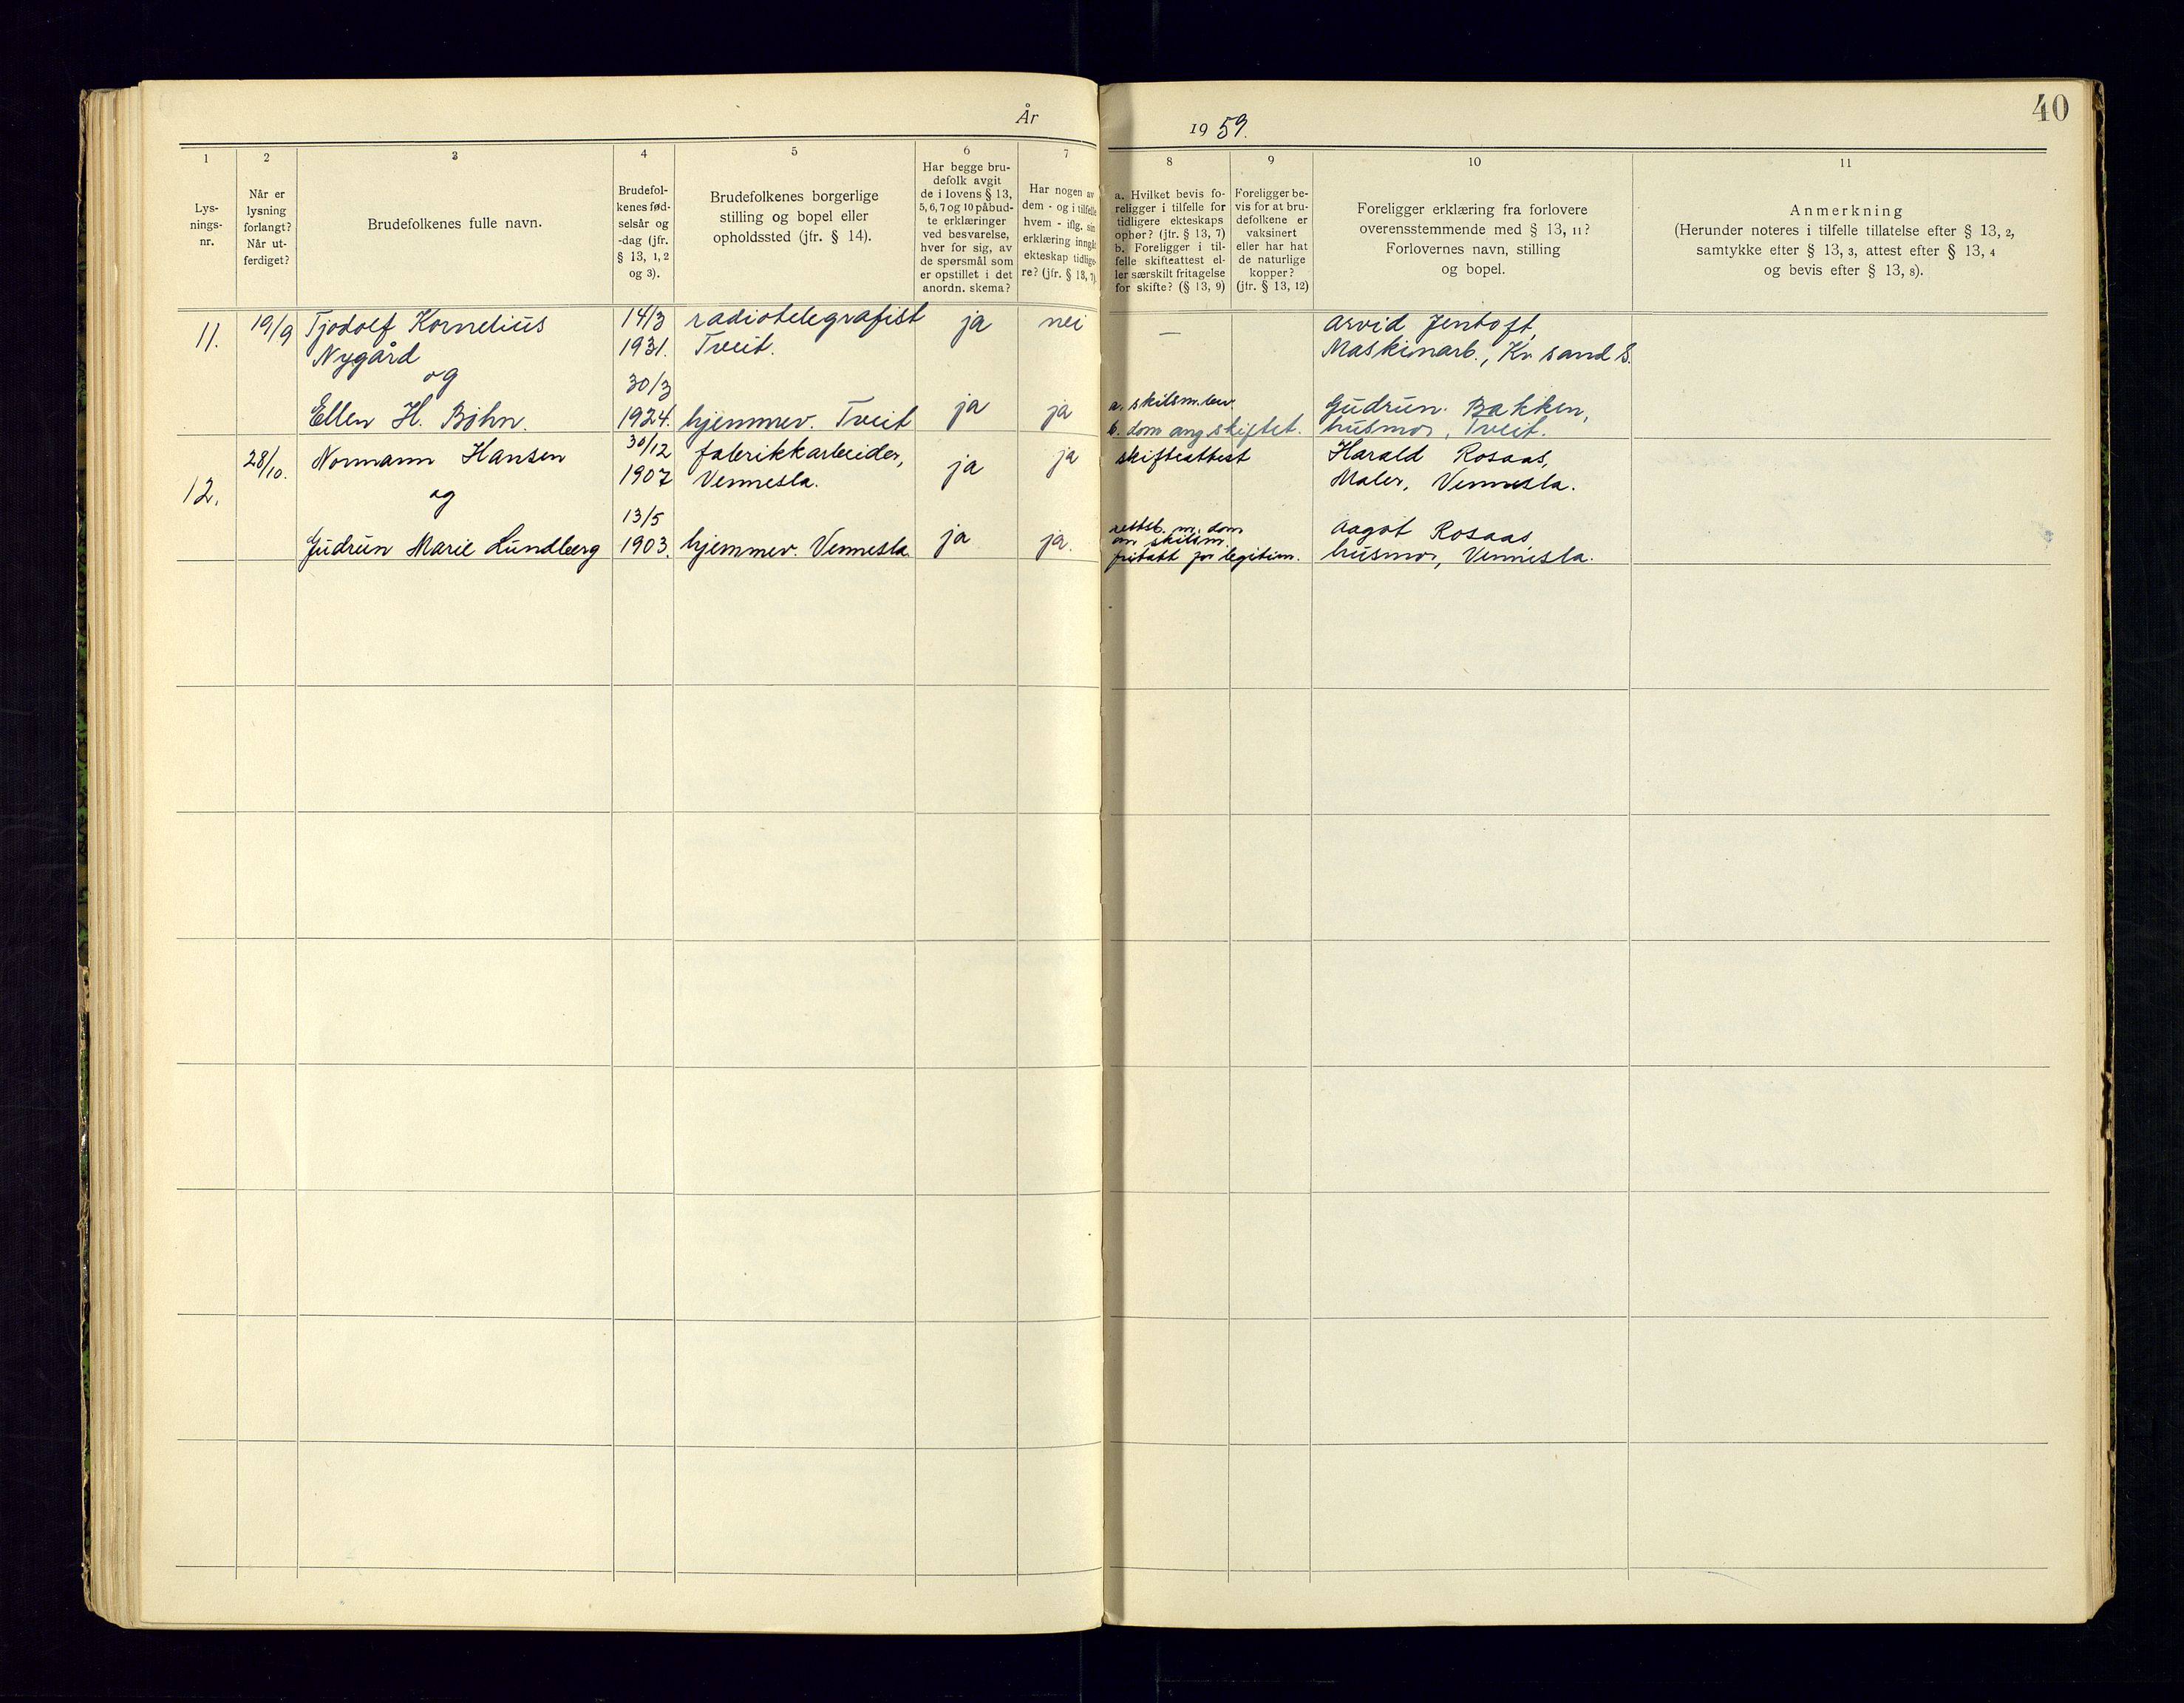 År 1959.
40
1
Lys-
nings-
nr.
2
Når er
lysning
forlangt?
Når ut-
ferdiget?
3
Brudefolkenes fulle navn.
4
Brudefol-
kenes fød-
selsår og
-dag (jfr.
§ 13, 1, 2
og 3).
5
Brudefolkenes borgerlige
stilling og bopel eller
opholdssted (jfr. § 14).
6
Har begge bru-
defolk avgit
de i lovens § 13,
5, 6, 7 og 10 påbud-
te erklæringer
ved besvarelse,
hver for sig, av
de spørsmål som
er opstillet i det
anordn. skema?
7
Har nogen av
dem - og i tilfelle
hvem - iflg. sin
erklæring inngått
ekteskap tidlige-
re? (jfr. § 13, 7)
8
a. Hvilket bevis fo-
religger i tilfelle for
tidligere ekteskaps
ophør? (jfr. § 13, 7)
b. Foreligger i til-
felle skifteattest el-
ler særskilt fritagelse
for skifte? (§ 13, 9)
9
Foreligger be-
vis for at bru-
defolkene er
vaksinert
eller har hat
de naturlige
kopper?
(jfr. § 13, 12)
10
Foreligger erklæring fra forlovere
overensstemmende med § 13, 11?
Forlovernes navn, stilling
og bopel.
11
Anmerkning
(Herunder noteres i tilfelle tillatelse efter § 13, 2,
samtykke efter § 13, 3, attest efter § 13, 4
og bevis efter § 13, 8).
11.
19/9
Tjodolf Kornelius
Nygård
og
Ellen H. Bøhn.
14/3
1931.
30/3
1924.
radiotelegrafist
Tveit.
hjemmev. Tveit
ja
ja
nei
ja
—
a. skilsm.bev.
b. dom ang skiftet.
Arvid Jentoft,
Maskinarb., Kr sand S.
Gudrun Bakken,
husmor, Tveit.
12.
28/10.
Normann Hansen
og
Gudrun Marie Lundberg
30/12
1907
13/5
1903.
fabrikkarbeider,
Vennesla.
hjemmev. Vennesla.
ja
ja
ja
ja.
skifteattest
rettsb. m. dom
om skilsm.
fritatt for legitim.
Harald Rosaas,
Maler, Vennesla.
Aagot Rosaas
husmor, Vennesla.